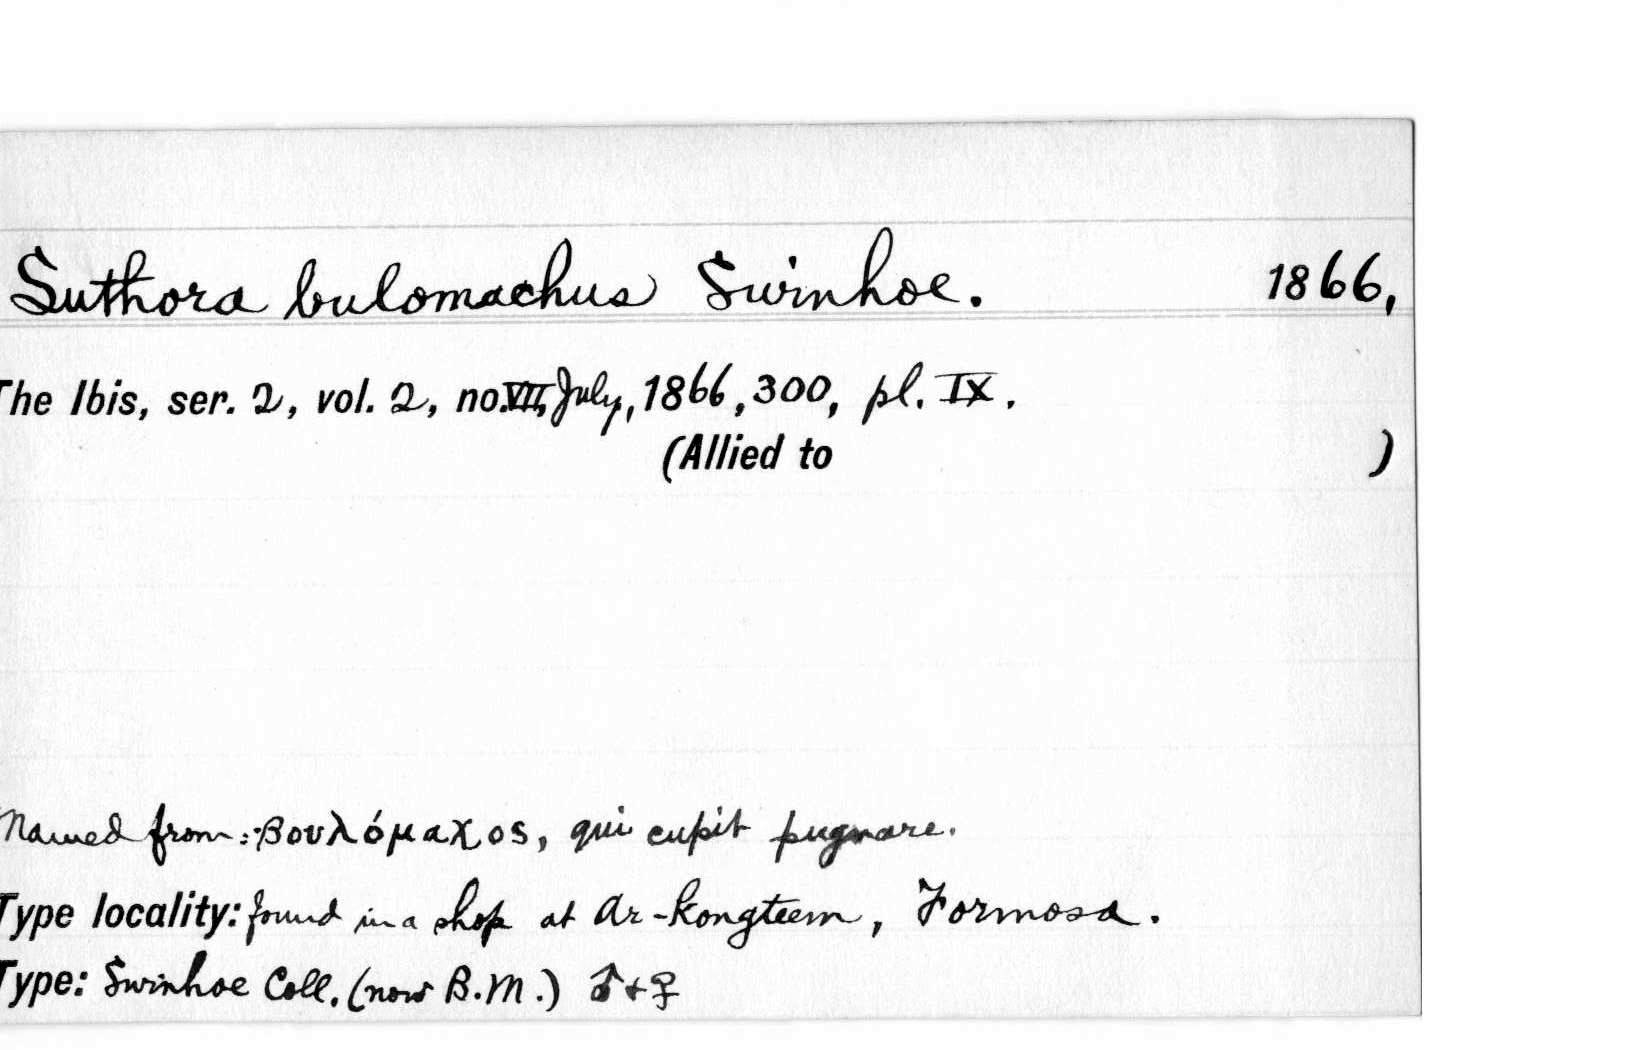 Suthora bulomachus Swinhoe. 1866,
The Ibis, ser. 2, vol. 2, no. VII, July, 1866, 300, pl. IX.
(Allied to )
Named from: Βουλόμαχος, qui cupit pugnare.
Type locality: found in a shop at Ar-kongteem, Formosa.
Type: Swinhoe Coll. (now B.M.) ♂+♀